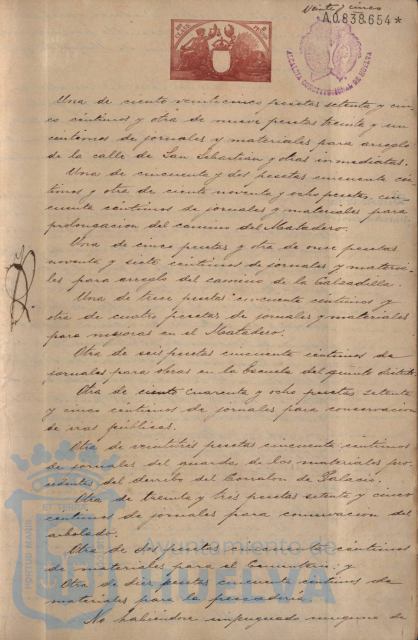 Veinte y cinco
A.0.838.654*
ALCALDIA CONSTITUCIONAL DE HUELVA
Una de ciento veinticinco pesetas setenta y cin-
co céntimos y otra de nueve pesetas treinta y un
céntimos de jornales y materiales para arreglo
de la calle de San Sebastian y otras inmediatas.
Una de cincuenta y dos pesetas cincuenta cén-
timos y otra de ciento noventa y ocho pesetas cin-
cuenta céntimos de jornales y materiales para
prolongacion del camino del Matadero.
Una de cinco pesetas y otra de once pesetas
noventa y siete céntimos de jornales y materia-
les para arreglo del camino de la Calzadilla.
Una de trece pesetas cincuenta céntimos y
otra de cuatro pesetas de jornales y materiales
para mejoras en el Matadero.
Otra de seis pesetas cincuenta céntimos de
jornales para obras en la Escuela del quinto distrito.
Otra de ciento cuarenta y ocho pesetas setenta
y cinco céntimos de jornales para conservacion
de vias públicas.
Otra de veintitres pesetas cincuenta céntimos
de jornales del guarda de los materiales pro-
cedentes del derribo del Corralon de Palacio.
Otra de treinta y tres pesetas setenta y cinco
céntimos de jornales para conservacion del
arbolado.
Otra de dos pesetas cincuenta céntimos
de materiales para el Cementerio y
Otra de diez pesetas cincuenta céntimos de
materiales para la pescadería.
No habiéndose impugnado ninguna de
Ayuntamiento de
HUELVA